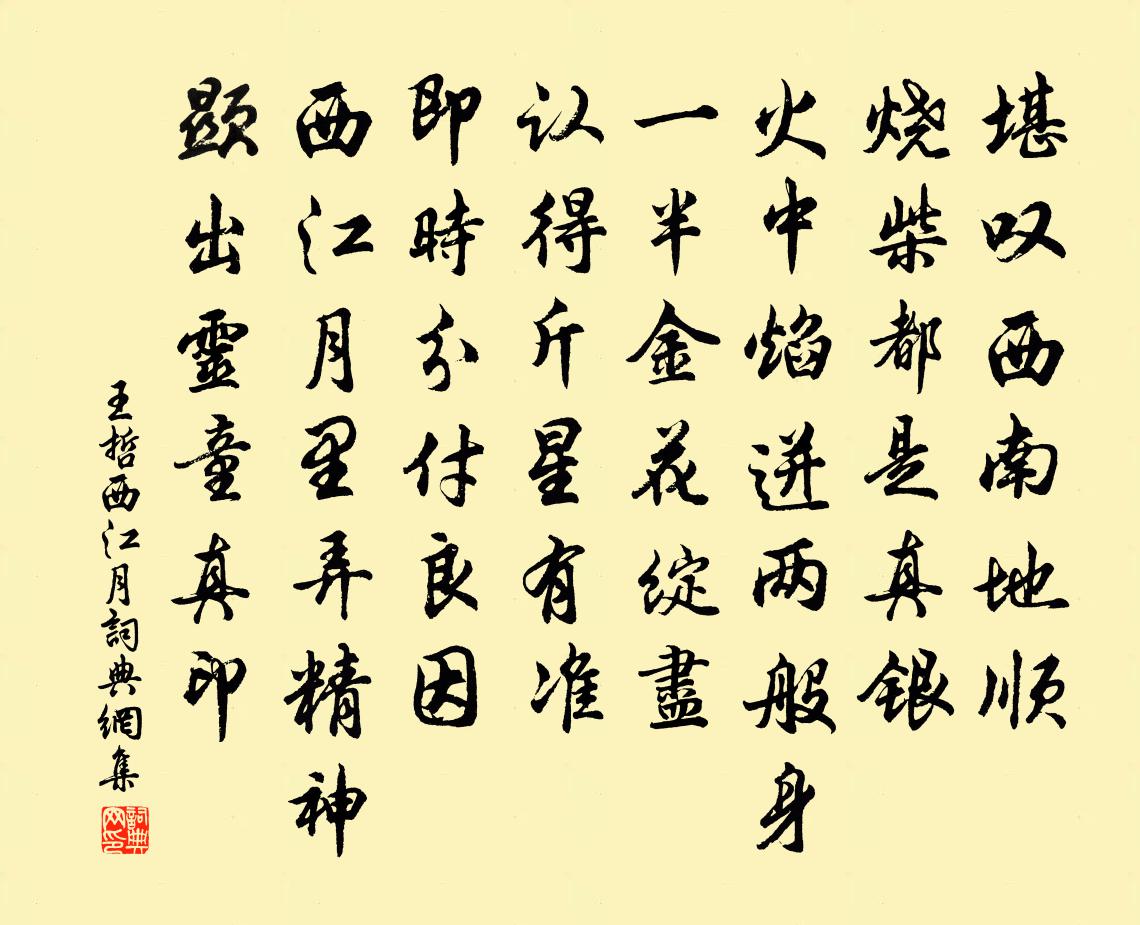 堪叹西南地顺
烧柴都是真银
火中焰迸两般身
一半金花绽盡
认得斤星有准
即時分付良因
西江月里弄精神
顕出靈童真印
王哲西江月詞典網集
詞典网印